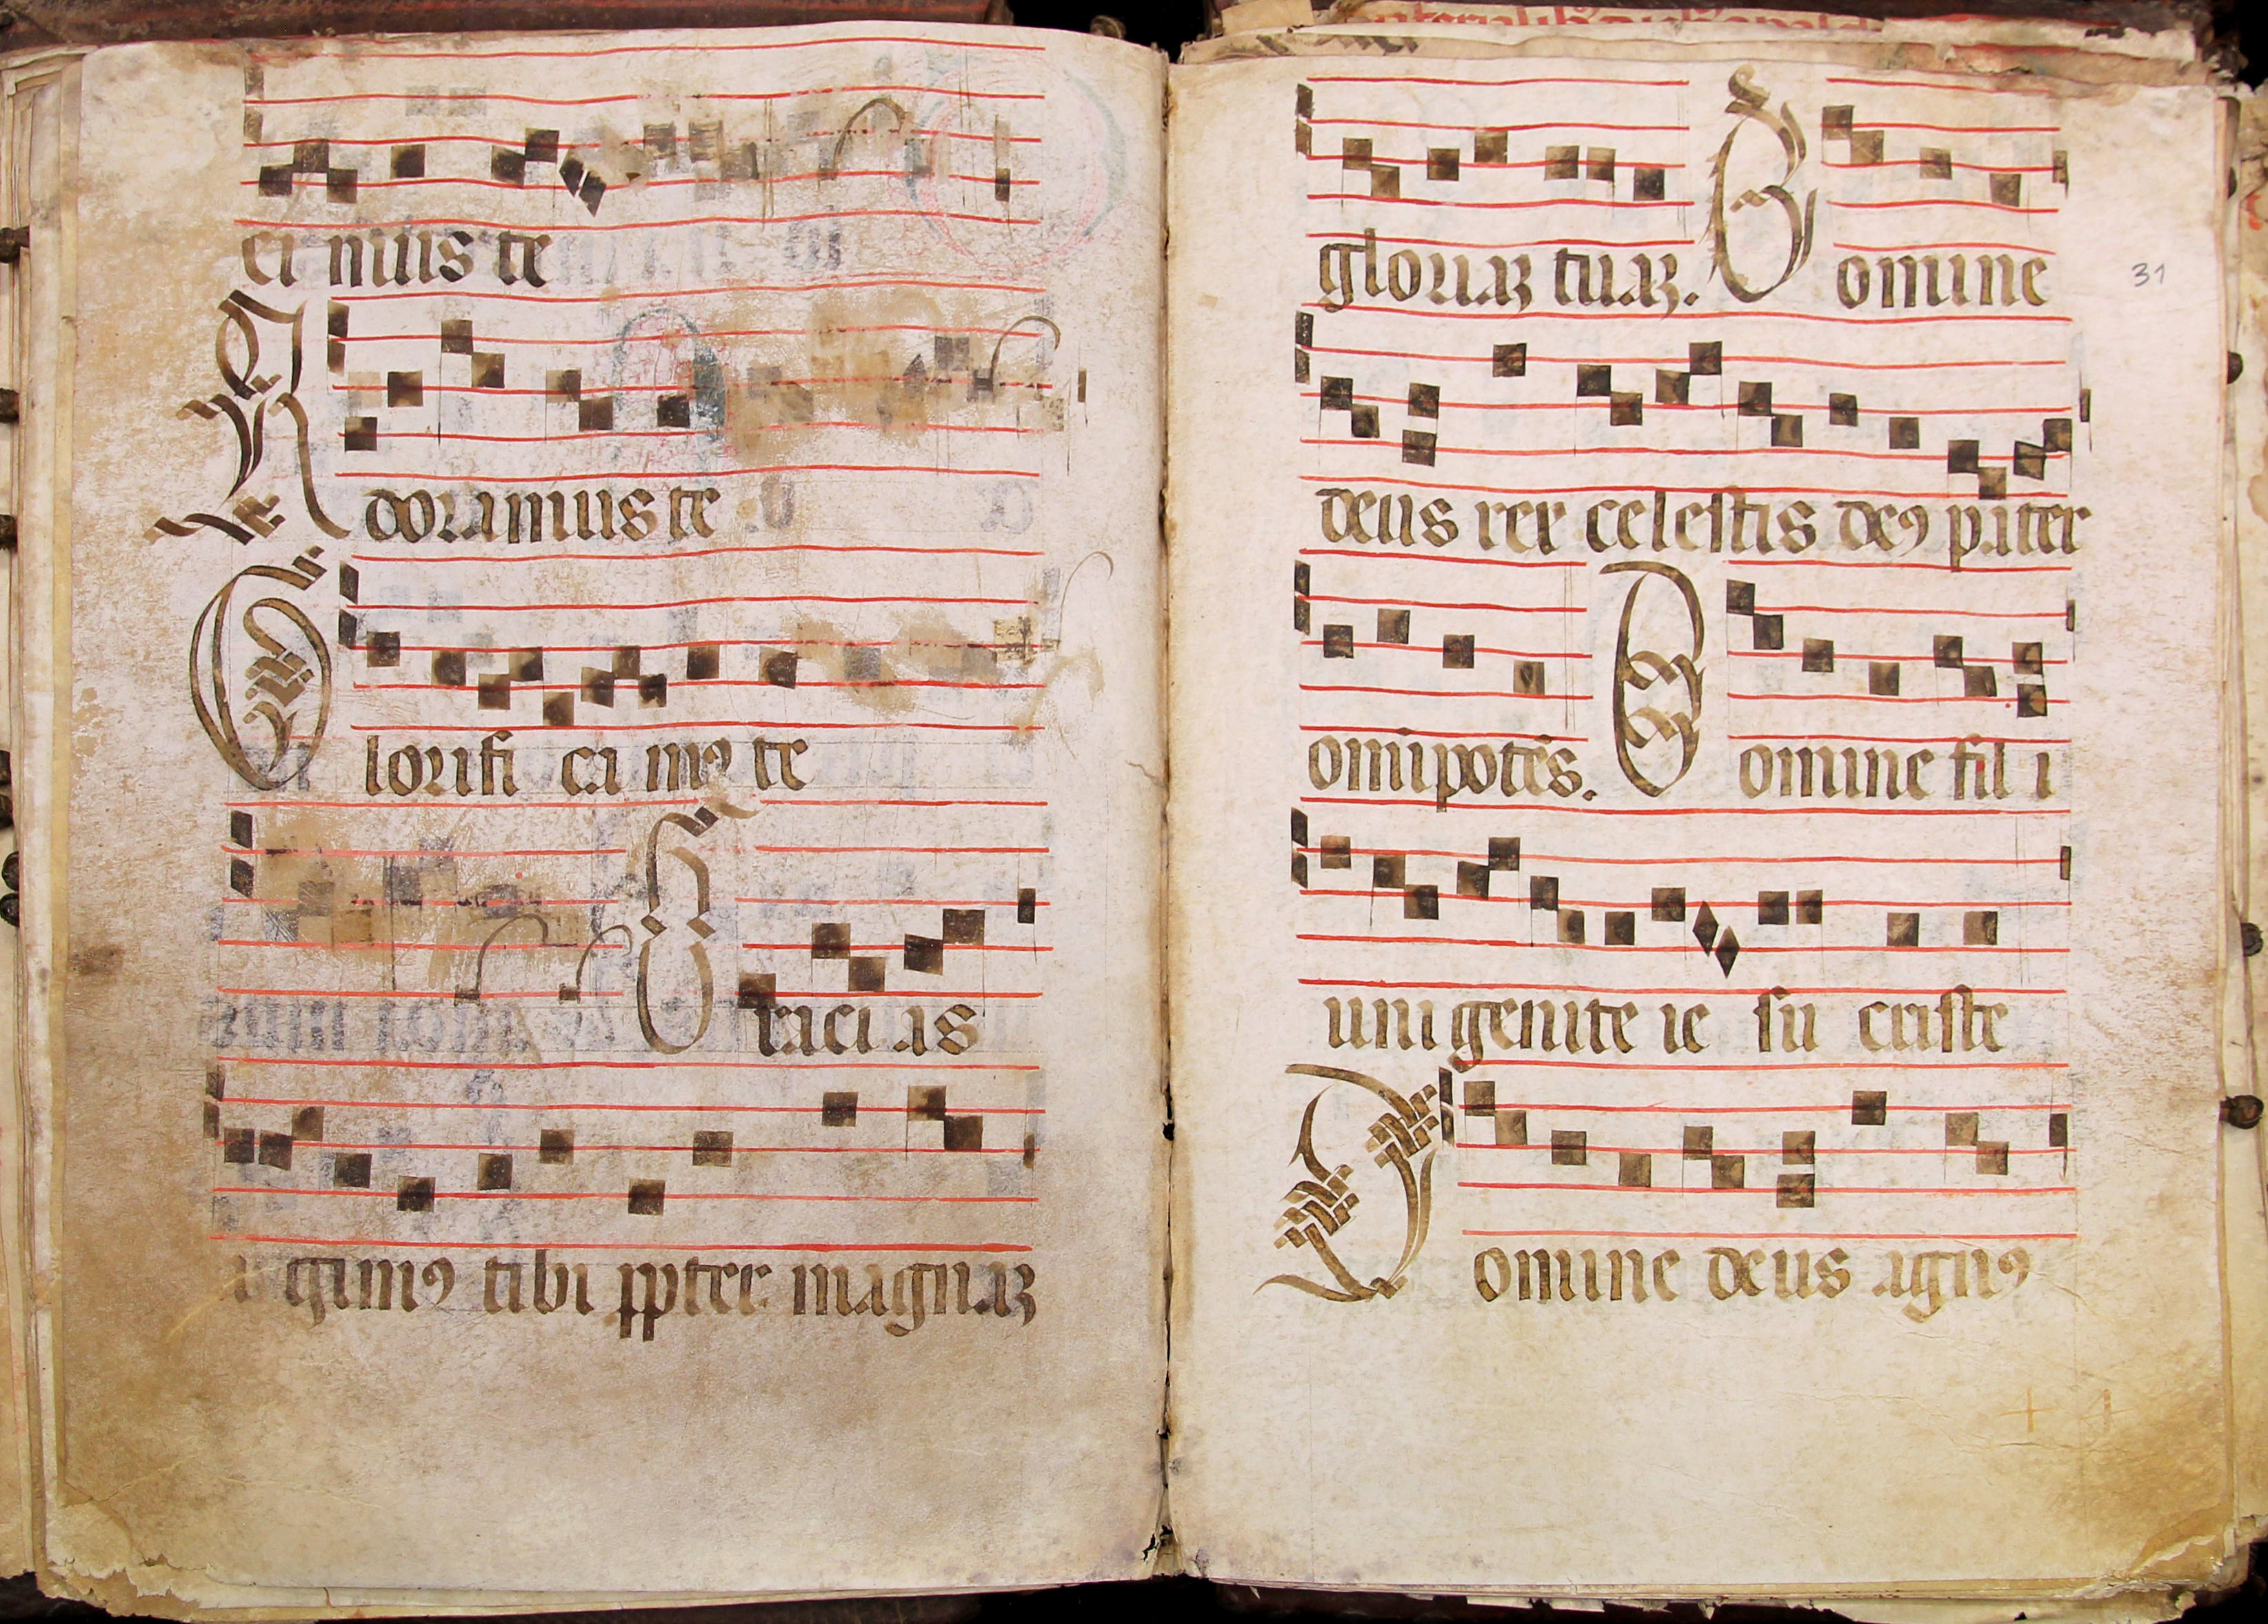 ci mus te
Adoramus te
Glorifi ca mꝰ te
Graci as
a gimꝰ tibi ꝓpter magnaꝫ
gloriaꝫ tuaꝫ. Domine
31
deus rex celestis deꝰ pater
omīpotēs. Domine fil i
uni genite ie su criste
Domine deus agnꝰ